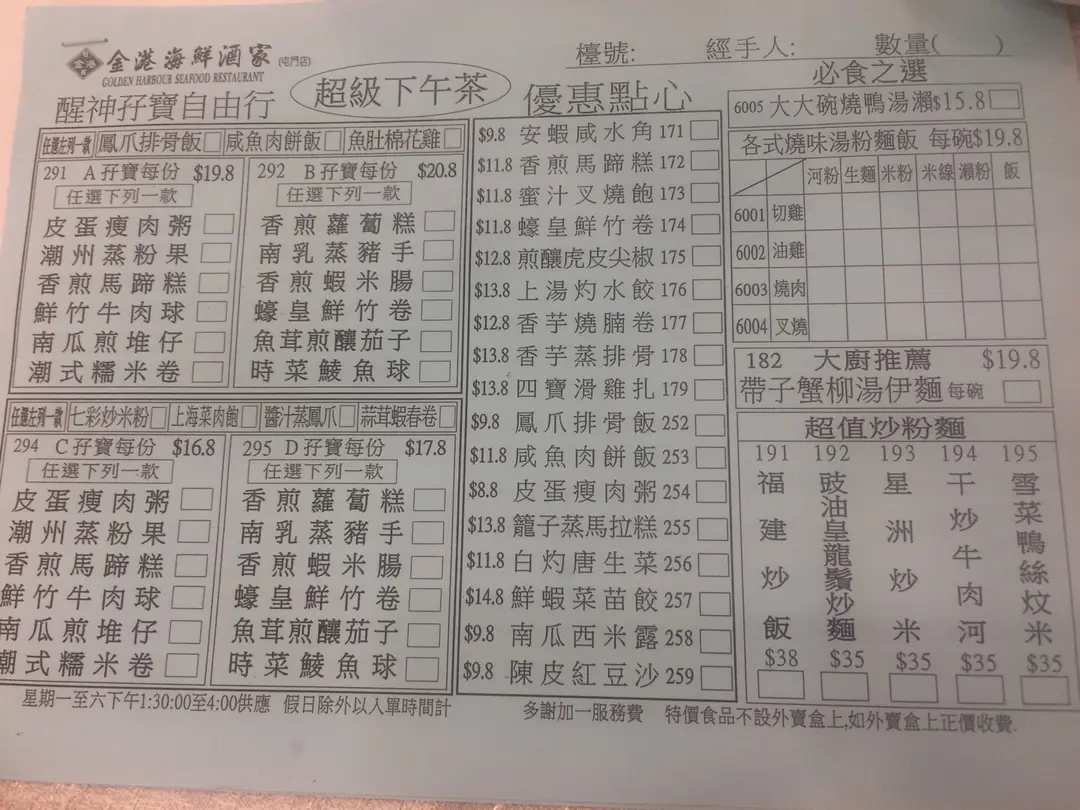 金港海鮮酒家(屯門店)
GOLDEN HARBOUR SEAFOOD RESTAURANT
檯號: 經手人: 數量( )
醒神孖寶自由行
超級下午茶
任選左列一款 鳳爪排骨飯 咸魚肉餅飯 魚肚棉花雞
291 A孖寶每份 $19.8
任選下列一款
皮蛋瘦肉粥
潮州蒸粉果
香煎馬蹄糕
鮮竹牛肉球
南瓜煎堆仔
潮式糯米卷
292 B孖寶每份 $20.8
任選下列一款
香煎蘿蔔糕
南乳蒸豬手
香煎蝦米腸
蠔皇鮮竹卷
魚茸煎釀茄子
時菜鯪魚球
任選左列一款 七彩炒米粉 上海菜肉飽 醬汁蒸鳳爪 蒜茸蝦春卷
294 C孖寶每份 $16.8
任選下列一款
皮蛋瘦肉粥
潮州蒸粉果
香煎馬蹄糕
鮮竹牛肉球
南瓜煎堆仔
潮式糯米卷
295 D孖寶每份 $17.8
任選下列一款
香煎蘿蔔糕
南乳蒸豬手
香煎蝦米腸
蠔皇鮮竹卷
魚茸煎釀茄子
時菜鯪魚球
優惠點心
$9.8 安蝦咸水角 171
$11.8 香煎馬蹄糕 172
$11.8 蜜汁叉燒飽 173
$11.8 蠔皇鮮竹卷 174
$12.8 煎釀虎皮尖椒 175
$13.8 上湯灼水餃 176
$12.8 香芋燒腩卷 177
$13.8 香芋蒸排骨 178
$13.8 四寶滑雞扎 179
$9.8 鳳爪排骨飯 252
$11.8 咸魚肉餅飯 253
$8.8 皮蛋瘦肉粥 254
$13.8 籠子蒸馬拉糕 255
$11.8 白灼唐生菜 256
$14.8 鮮蝦菜苗餃 257
$9.8 南瓜西米露 258
$9.8 陳皮紅豆沙 259
必食之選
6005 大大碗燒鴨湯瀨 $15.8
各式燒味湯粉麵飯 每碗$19.8
河粉 生麵 米粉 米線 瀨粉 飯
6001 切雞
6002 油雞
6003 燒肉
6004 叉燒
182 大廚推薦 $19.8
帶子蟹柳湯伊麵 每碗
超值炒粉麵
191 福建炒飯 $38
192 豉油皇龍鬚炒麵 $35
193 星洲炒米 $35
194 干炒牛肉河 $35
195 雪菜鴨絲炆米 $35
星期一至六下午1:30:00至4:00供應 假日除外以入單時間計
多謝加一服務費 特價食品不設外賣盒上,如外賣盒上正價收費.